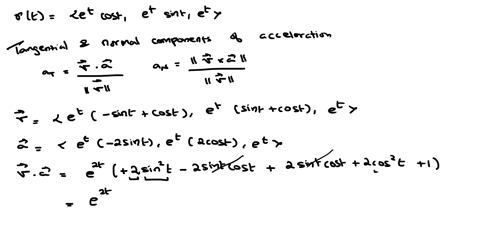 r(t) = <e^t cost, e^t sint, e^t>
Tangential & normal components of acceleration
a_T = (v⃗ . a⃗) / ||v⃗||    a_N = ||v⃗ x a⃗|| / ||v⃗||
v⃗ = <e^t (-sint + cost), e^t (sint + cost), e^t>
a⃗ = <e^t (-2sint), e^t (2cost), e^t>
v⃗ . a⃗ = e^2t (+2sin²t - 2sint cost + 2sint cost + 2cos²t + 1)
= e^2t